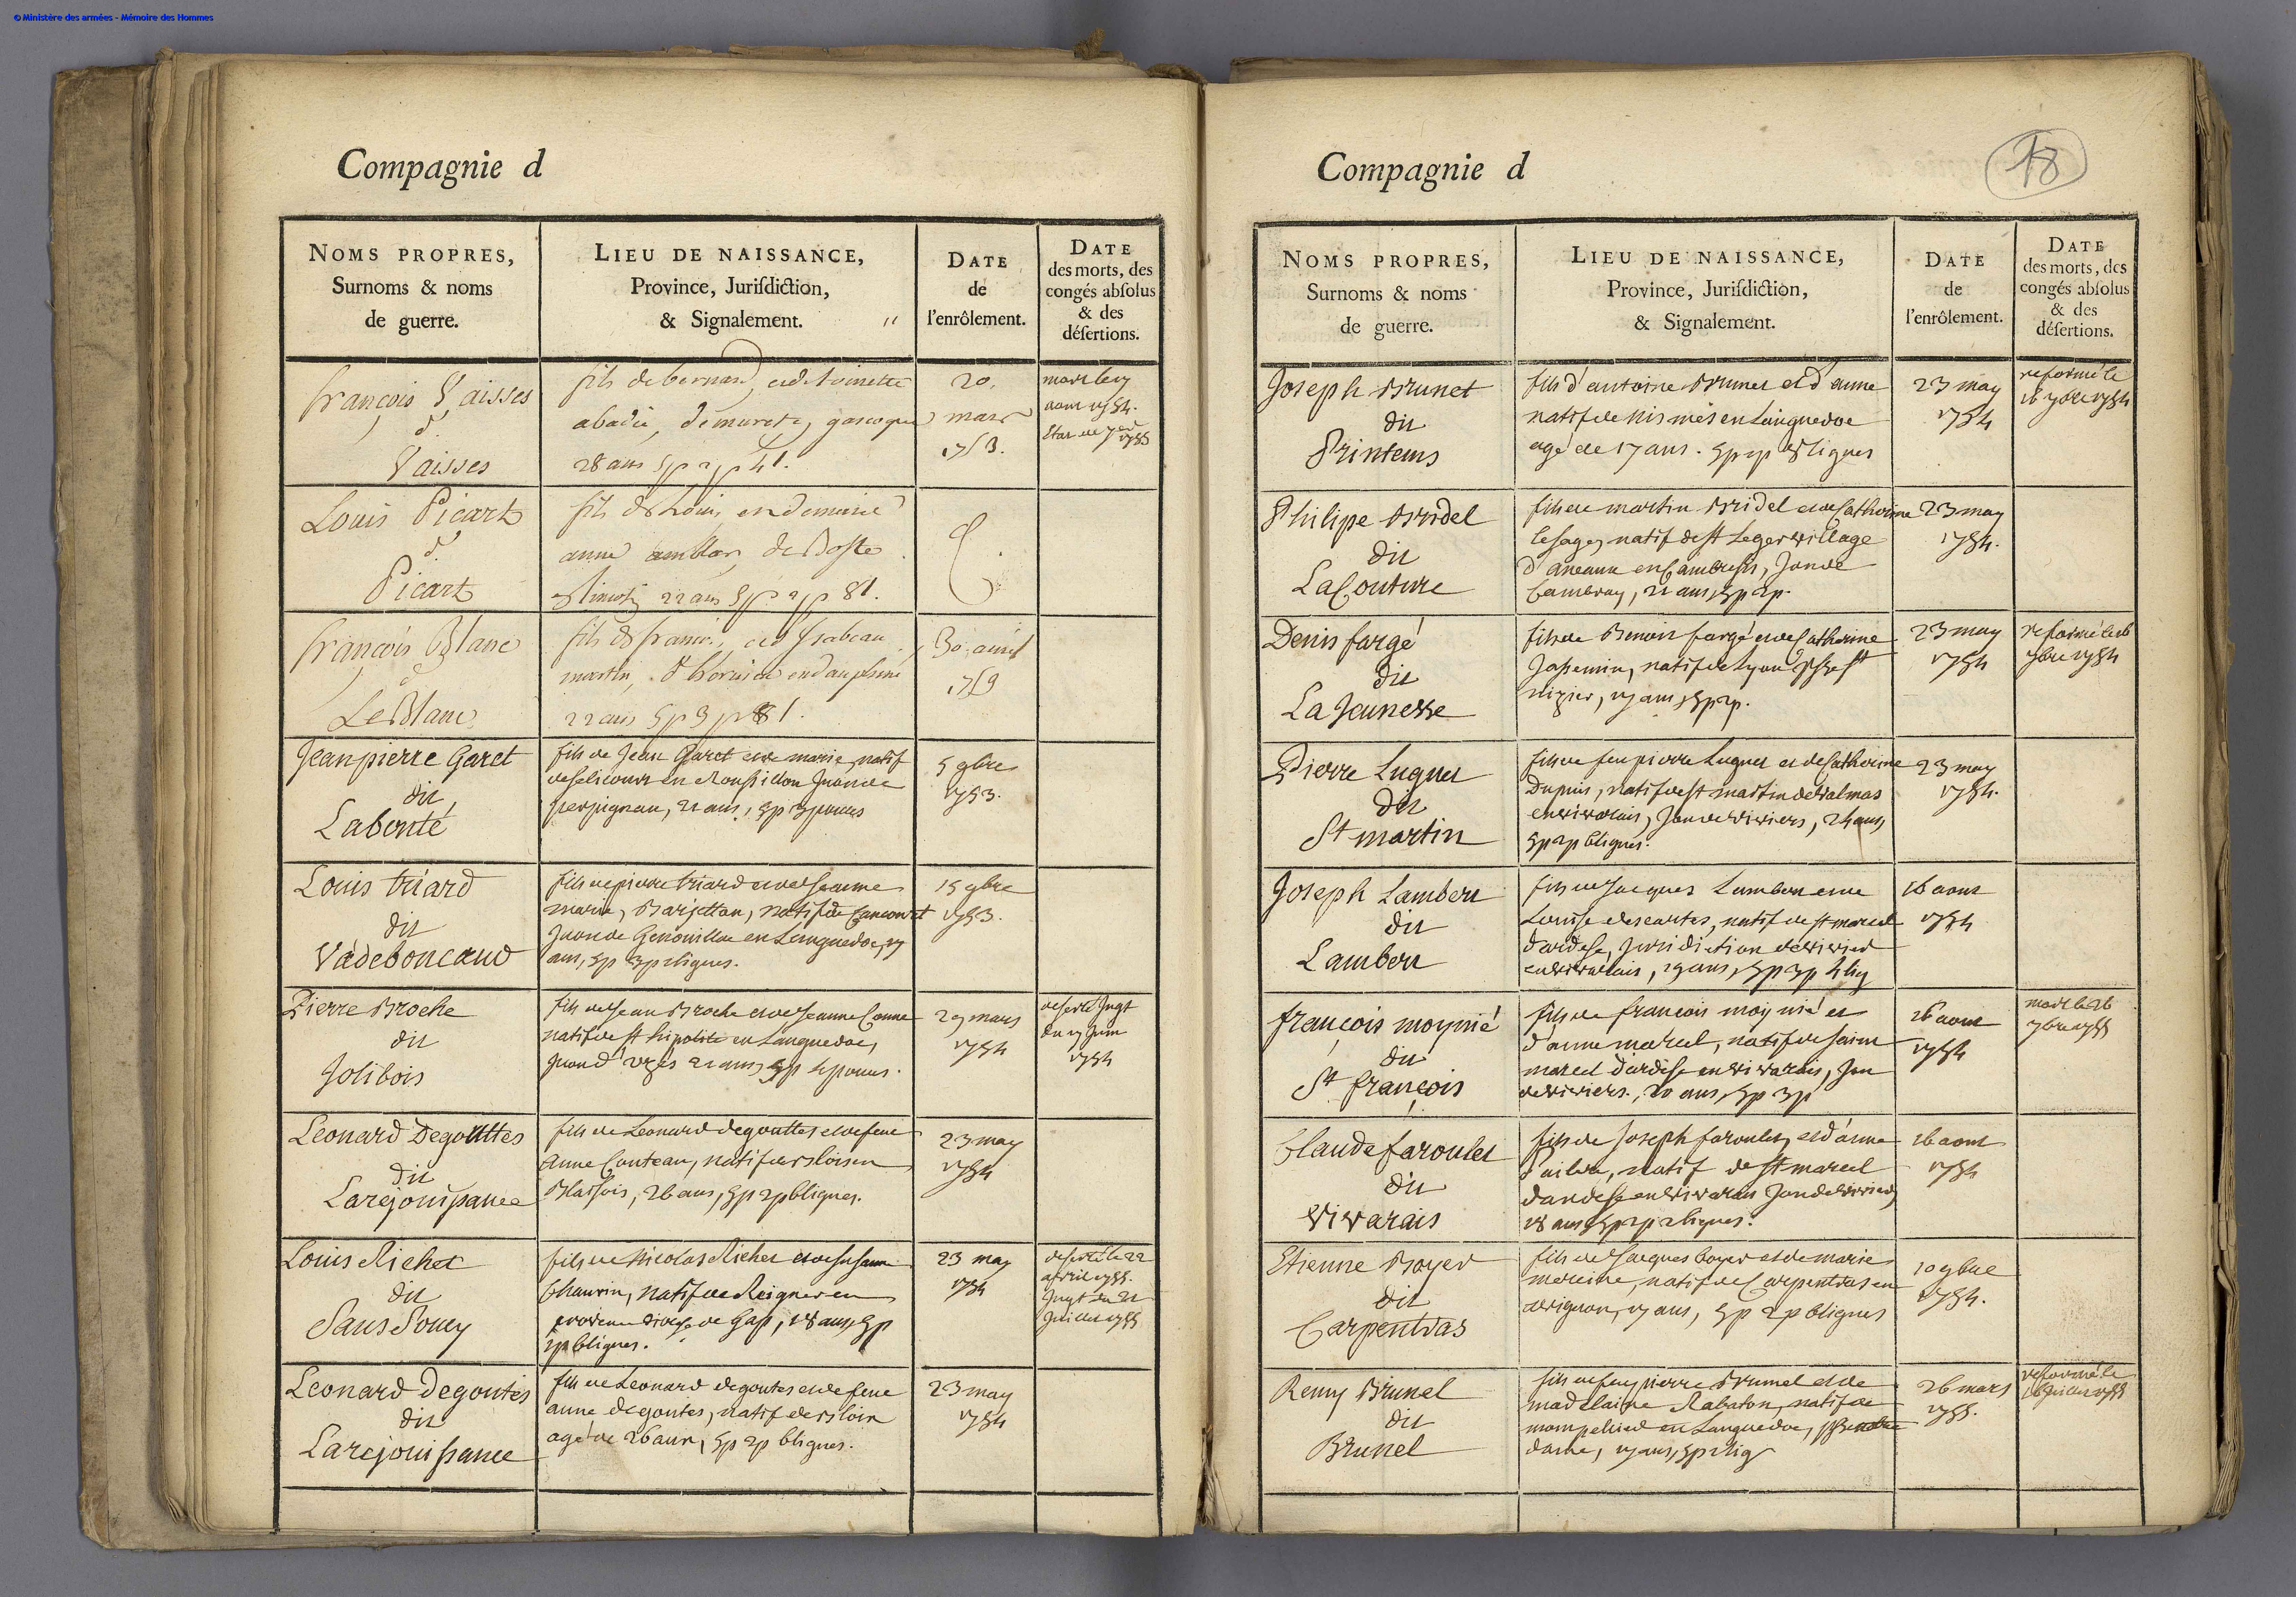 © Ministère des armées - Mémoire des Hommes
Compagnie d
NOMS PROPRES,
Surnoms & noms
de guerre.
LIEU DE NAISSANCE,
Province, Jurisdiction,
& Signalement.
DATE
de
l'enrôlement.
DATE
des morts, des
congés absolus
& des
désertions.
françois Vaisses
d.
Vaisses
fils de bernard, et de toinette
abadie, de muret, gascogne
28 ans 5 p 2 p 4 l.
20.
mars
1753.
mort le
aout 1754.
1755
Louis Picart
d.
Picart
fils de Louis, et de marie
anne
22 ans 5 p 2 p 8 l.
françois Blanc
d
LeBlanc
fils de françois, et d'Isabeau
martin, en dauphiné
22 ans 5 p 3 p 8 l.
30 avril
1753
Jean pierre Garet
dit
Labonté
fils de Jean Garet et de marie, natif
en Roussillon Juron de
perpignan, 22 ans, 5 p 3 pouces
5 9bre
1753.
Louis triard
dit
Vadeboncœur
fils de pierre triard et de Jeanne
marie, Barjettan, natif de
Juron de Genouillac en Languedoc, 17
ans, 5 p 3 p 2 lignes.
15 9bre
1753.
Pierre Broche
dit
Jolibois
fils de Jean Broche et de Jeanne
natif de st hipolite en Languedoc,
Juron d'uzès 21 ans, 5 p 4 pouces.
29 mars
1754
deserté Jugt
du 17 Juin
1754
Leonard Degouttes
dit
Larejouissance
fils de Leonard degouttes et de feue
anne Couteau, natif de Blois en
Blaisois, 26 ans, 5 p 2 p 6 lignes.
23 may
1754
Louis Richet
dit
Sans Soucy
fils de Nicolas Richet et de susanne
Chauvin, natif de en
de Gap, 18 ans, 5 p
2 p 6 lignes.
23 may
1754
deserté le 22
avril 1755.
Jugt du 21
Juillet 1755
Leonard degoutes
dit
Larejouissance
fils de Leonard degoutes et de feue
anne degoutes, natif de Bloix
agé de 26 ans, 5 p 2 p 6 lignes.
23 may
1754
18
Compagnie d
NOMS PROPRES,
Surnoms & noms
de guerre.
LIEU DE NAISSANCE,
Province, Jurisdiction,
& Signalement.
DATE
de
l'enrôlement.
DATE
des morts, des
congés absolus
& des
désertions.
Joseph Brunet
dit
Printems
fils d'antoine Brunet et d'anne
natif de Nismes en Languedoc
agé de 17 ans. 5 p 2 p 8 lignes
23 may
1754
reformé le
16 7bre 1754
Philipe Bridel
dit
LaCouture
fils de martin Bridel et de Catherine
lesage, natif de st Leger village
en Cambresis, Jon de
Cambray, 22 ans, 5 p 2 p.
23 may
1754.
Denis fargé
dit
La Jeunesse
fils de Benoist fargé et de Catherine
Jassemin, natif de Lyon psse st
nizier, 17 ans, 5 p 2 p.
23 may
1754
reformé le 16
7bre 1754
Pierre Luquet
dit
St martin
fils de feu pierre Luquet et de Catherine
Dupuis, natif de st martin de valmas
en vivarais, Jon de viviers, 24 ans,
5 p 2 p 6 lignes.
23 may
1754.
Joseph Lambert
dit
Lambert
fils de Jacques Lambert et de
Louise descartes, natif de st marcel
d'ardese, Jurisdiction de viviers
en vivarais, 19 ans, 5 p 3 p 4 lig
16 aout
1754
françois moynié
dit
St françois
fils de francois moynié et
d'anne marcel, natif de saint
marcel d'ardese en vivarais, Jon
de viviers., 20 ans, 5 p 3 p
16 aout
1754
mort le 26
7bre 1755
Claude faroulet
dit
vivarais
fils de Joseph faroulet, et d'anne
natif de st marcel
d'ardese en vivarais Jon de viviers,
18 ans 5 p 2 p 2 lignes.
16 aout
1754
Etienne Boyer
dit
Carpentras
fils de Jacques boyer et de marie
natif de Carpentras en
avignon, 17 ans, 5 p 2 p 6 lignes
10 9bre
1754.
Remy Brunel
dit
Brunel
fils de feu pierre Brunel et de
madelaine Rabaton, natif de
mompelied en Languedoc, psse notre
dame, 17 ans, 5 p 2 lig
26 mars
1755.
reformé le
16 Juillet 1755